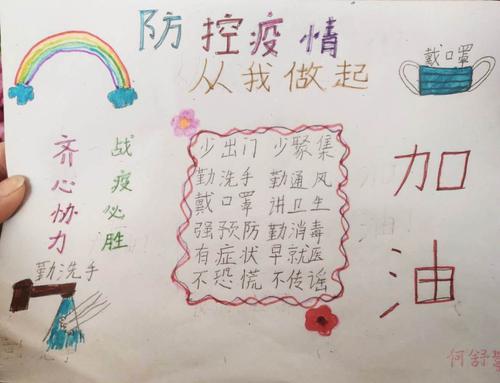 防控疫情
从我做起
戴口罩
齐心协力
战疫必胜
少出门 少聚集
勤洗手 勤通风
戴口罩 讲卫生
强预防 勤消毒
有症状 早就医
不恐慌 不传谣
加
油
勤洗手
何舒